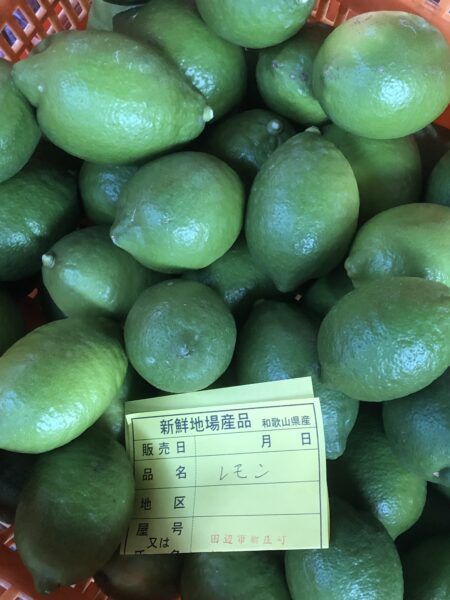 新鮮地場産品 和歌山県産
販売日 月 日
品名 レモン
地区
屋号
又は 田辺市新庄町